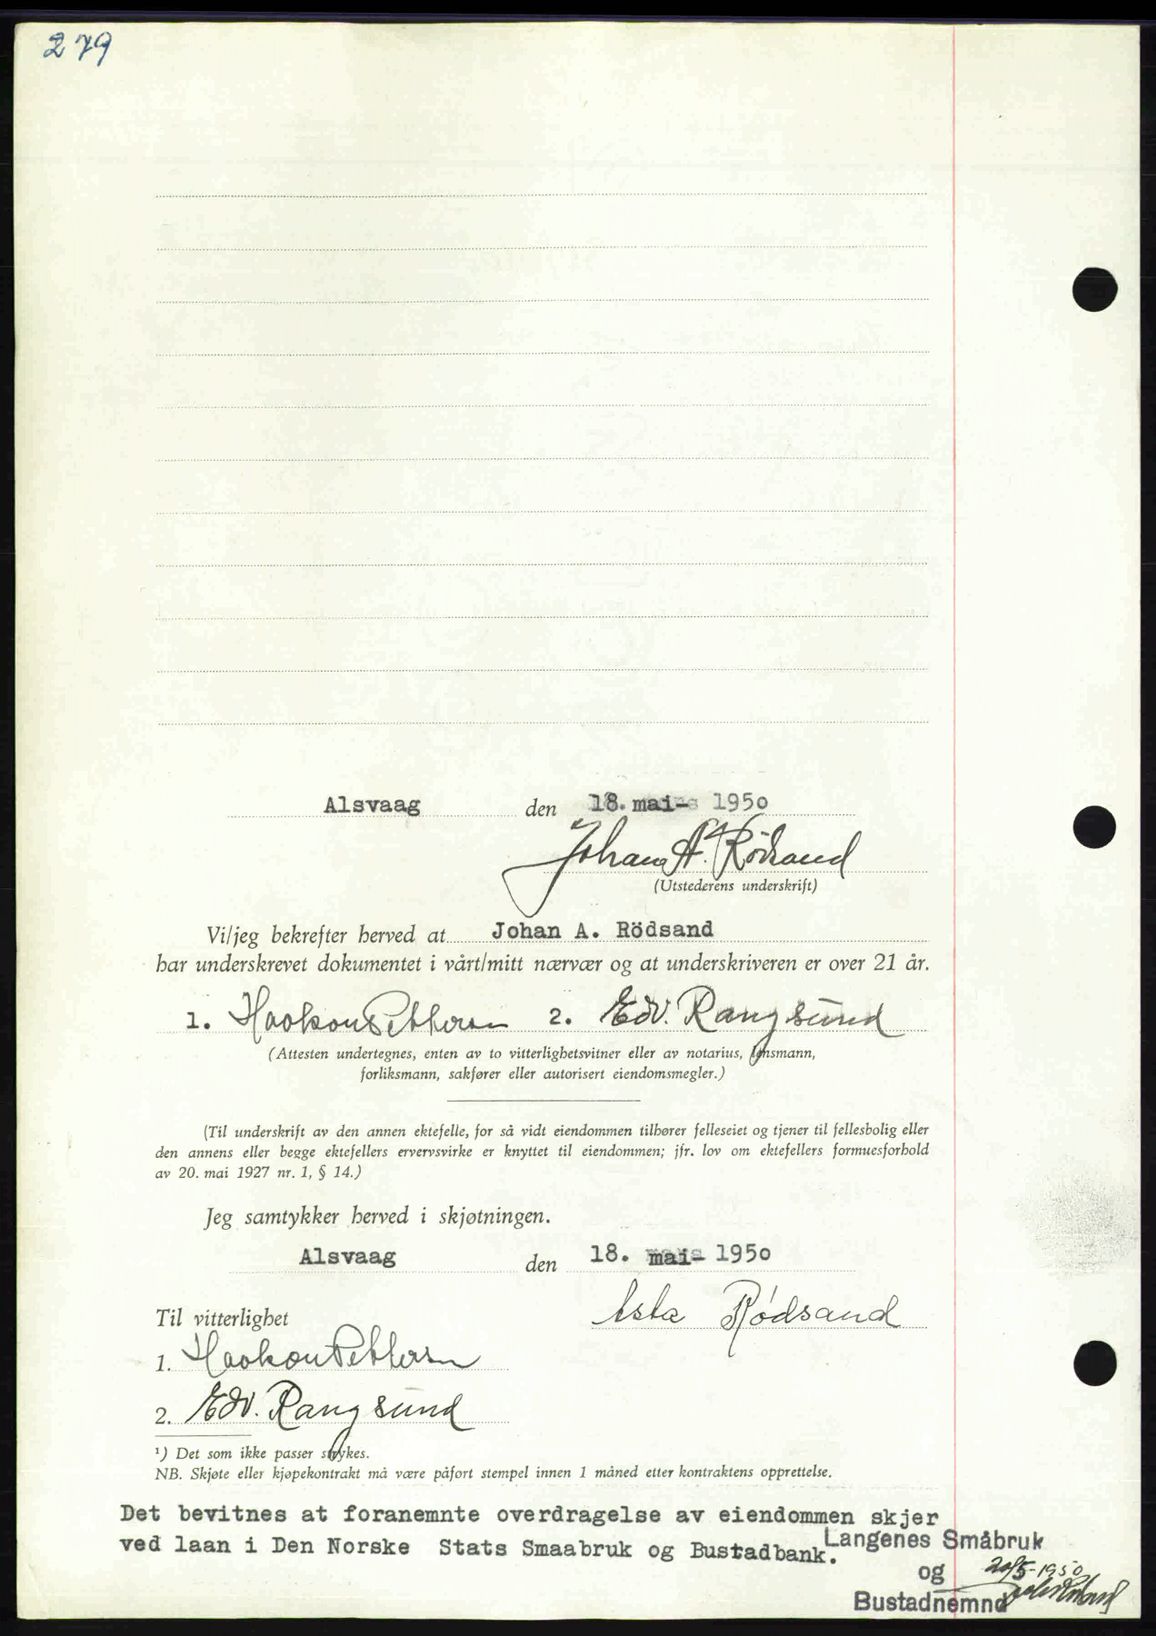 279
Alsvaag den 18. mai- 1950
Johan A. Rödsand
(Utstederens underskrift)
Vi/jeg bekrefter herved at Johan A. Rödsand
har underskrevet dokumentet i vårt/mitt nærvær og at underskriveren er over 21 år.
1. Haakon Pettersen 2. Edv. Rangsund
(Attesten undertegnes, enten av to vitterlighetsvitner eller av notarius, lensmann,
forliksmann, sakfører eller autorisert eiendomsmegler.)
(Til underskrift av den annen ektefelle, for så vidt eiendommen tilhører felleseiet og tjener til fellesbolig eller
den annens eller begge ektefellers ervervsvirke er knyttet til eiendommen; jfr. lov om ektefellers formuesforhold
av 20. mai 1927 nr. 1, § 14.)
Jeg samtykker herved i skjøtningen.
Alsvaag den 18. mai- 1950
Asta Rödsand
Til vitterlighet
1. Haakon Pettersen
2. Edv. Rangsund
¹) Det som ikke passer strykes.
NB. Skjøte eller kjøpekontrakt må være påført stempel innen 1 måned etter kontraktens opprettelse.
Det bevitnes at foranemnte overdragelse av eiendommen skjer
ved laan i Den Norske Stats Smaabruk og Bustadbank.
Langenes Småbruk
og 20/5-1950
Bustadnemnd